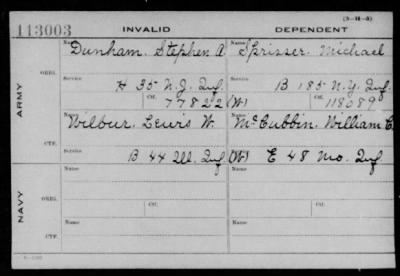 (3-M-3)
113003 INVALID DEPENDENT
Name Dunham, Stephen A. Name Sprisser, Michael
ARMY
ORIG.
Service H 35 N.J. Inf. Service B 185 N.Y. Inf.
Ctf. 778282 (W) Ctf. 118089
Name Wilbur, Lewis W. Name McCubbin, William C.
CTF.
Service B 44 Ill. Inf. (W) Service E 48 Mo. Inf
NAVY
ORIG.
Name Ctf. Name Ctf.
CTF.
Name Name